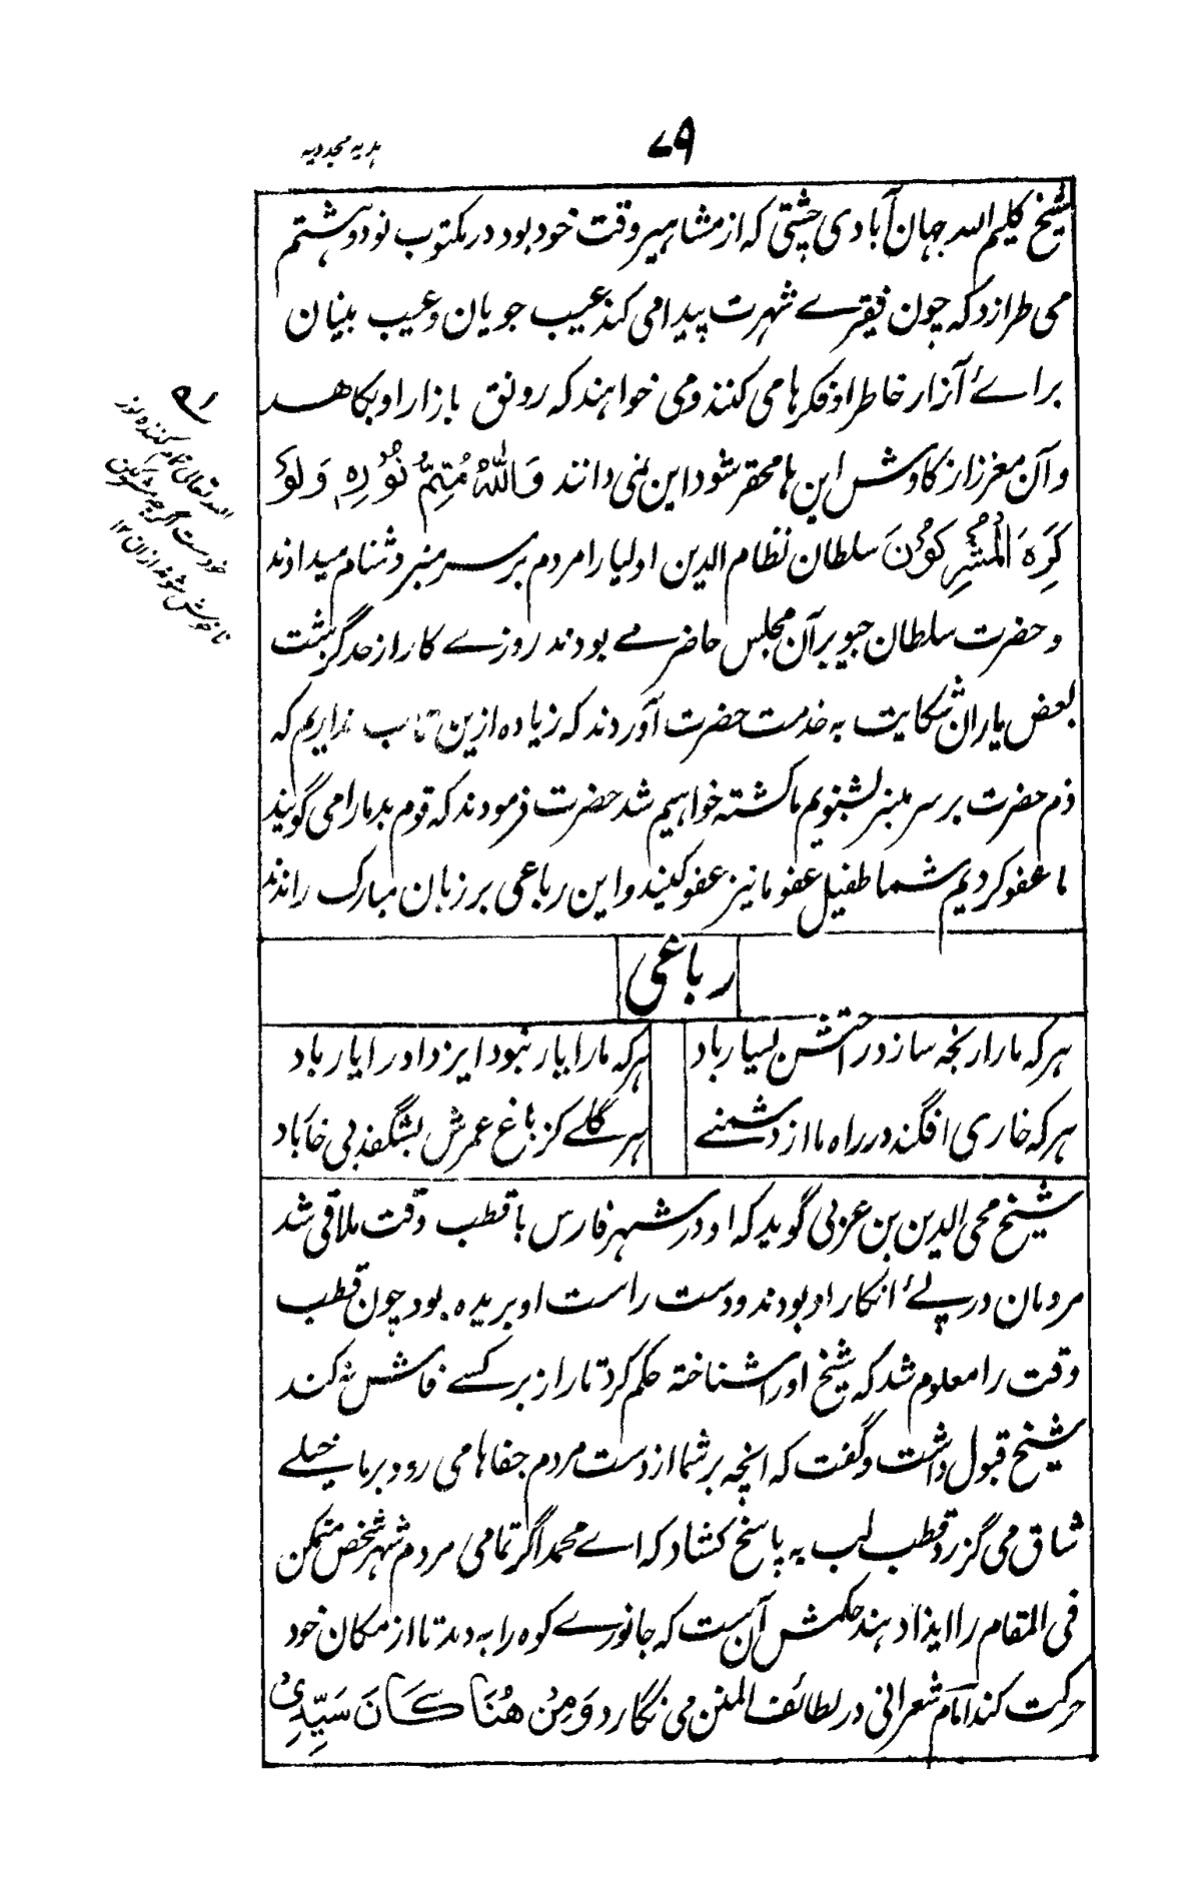 ۷۹
ہدیہ مجددیہ
شیخ کلیم اللہ جہان آبادی چشتی کہ از مشاہیر وقت خود بود در مکتوب نود و ہشتم
می طرازد کہ چون فقیرے شہرت پیدا می کند عیب جویان و عیب بنیان
براۓ آزار خاطر او فکرہا می کنند و می خواہند کہ رونق بازار او بکاھند
و آن معزز از کاوش این ہا محقر شود این نمی دانند وَاللّٰهُ مُتِمُّ نُوْرِهٖ وَلَوْ
كَرِهَ الْمُشْرِكُوْنَ سلطان نظام الدین اولیا را مردم بر سر منبر دشنام میدادند
و حضرت سلطان جیو بر آن مجلس حاضر مے بودند روزے کار از حد گزشت
بعض یاران شکایت بہ خدمت حضرت آوردند کہ زیادہ ازین تاب نداریم کہ
ذم حضرت بر سر منبر بشنویم ما کشتہ خواہیم شد حضرت فرمودند کہ قوم بد ما را می گویند
ما عفو کردیم شما طفیل عفو ما نیز عفو کنید و این رباعی بر زبان مبارک راندند
رباعی
ہر کہ ما را رنجہ سازد راحتش بسیار باد ہر کہ ما را یار نبود ایزد اورا یار باد
ہر کہ خاری افگند در راہ ما از دشمنے ہر گلے کز باغ عمرش بشگفد بی خار باد
شیخ محی الدین بن عربی گوید کہ او در شہر فارس با قطب وقت ملاقی شد
مردمان در پۓ انکار او بودند و دست راست او بریدہ بود چون قطب
وقت را معلوم شد کہ شیخ اورا شناختہ حکم کرد تا راز بر کسے فاش نہ کند
شیخ قبول داشت و گفت کہ انچہ بر شما از دست مردم جفاہا می رود بر ما خیلے
شاق می گزرد قطب لب بہ پاسخ کشاد کہ اے محمد اگر تمامی مردم شہر شخص متمکن
فی المقام را ایذا دہند حکمش آن ست کہ جانورے کوہ را بہ دمد تا از مکان خود
حرکت کند امام شعرانی در لطائف المنن می نگارد وَمِنْ هُنَا كَانَ سَيِّدِيْ
اللہ تعالیٰ تمام کنندہ نور
خود ست اگرچہ مشرکین
ناخوش شوند ازان ۱۲